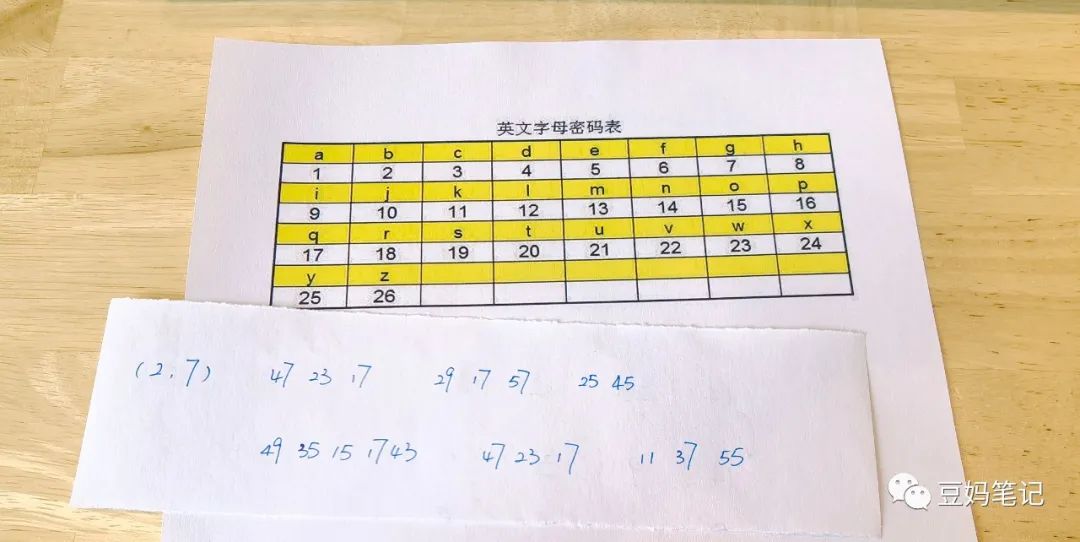 英文字母密码表
a b c d e f g h
1 2 3 4 5 6 7 8
i j k l m n o p
9 10 11 12 13 14 15 16
q r s t u v w x
17 18 19 20 21 22 23 24
y z
25 26
(2,7) 47 23 17 29 17 57 25 45
49 35 15 17 43 47 23 17 11 37 55
豆妈笔记